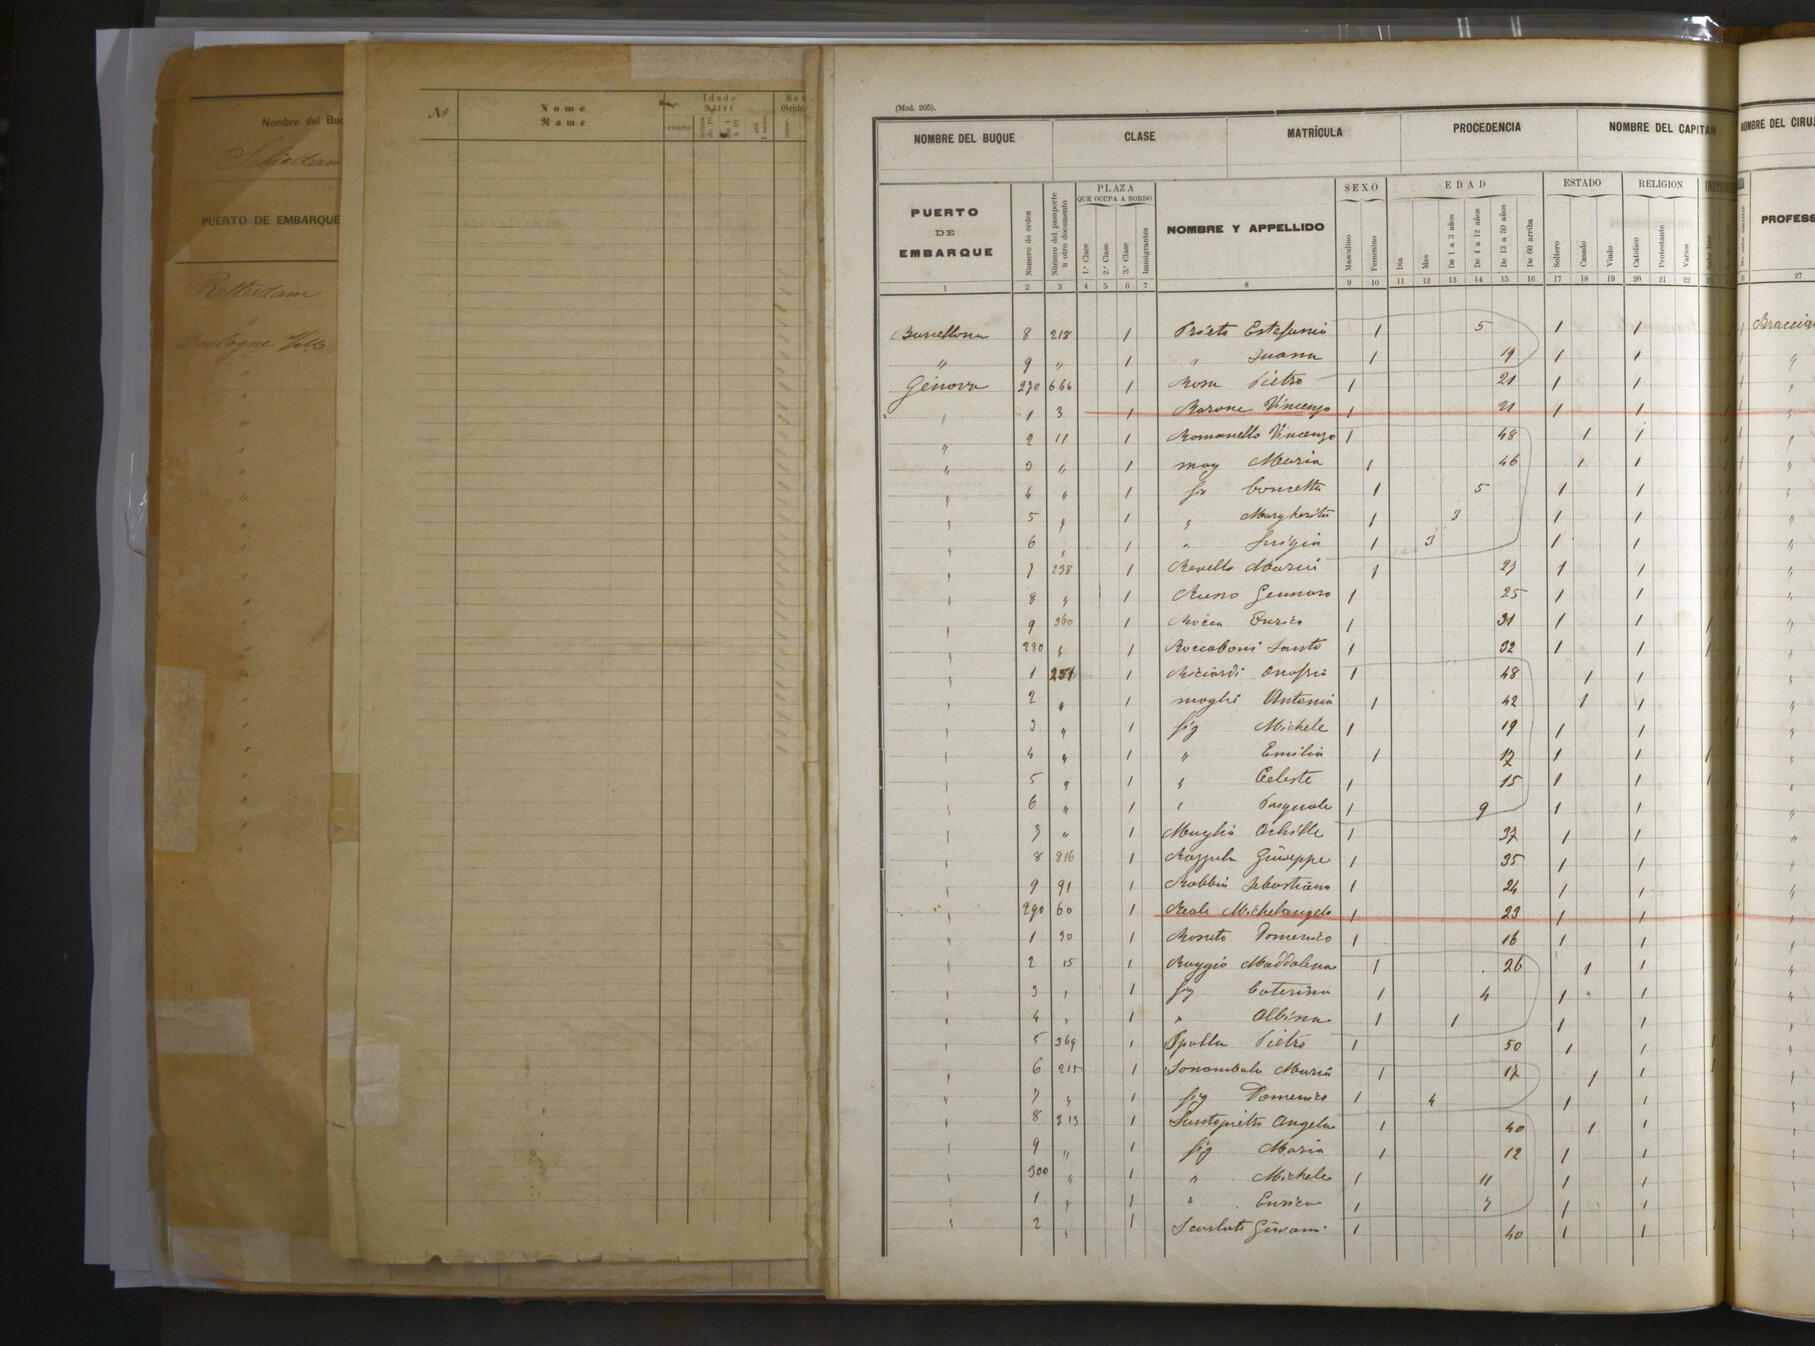 Nombre del Buq
Schiedam
PUERTO DE EMBARQUE
Rotterdam
Boulogne
Nº Nome Name Idade Alter
exacto
(Mod. 205).
NOMBRE DEL BUQUE CLASE MATRÍCULA PROCEDENCIA NOMBRE DEL CAPITAN NOMBRE DEL CIRUJ
PUERTO DE EMBARQUE
Número de órden
Número del pasaporte ú otro documento
PLAZA QUE OCUPA A BORDO
1.ª Clase 2.ª Clase 3.ª Clase Inmigrantes
NOMBRE Y APPELLIDO
SEXO
Masculino Femenino
EDAD
Dia Mes De 1 a 3 años De 4 a 12 años De 13 a 59 años De 60 arriba
ESTADO
Soltero Casado Viudo
RELIGION
Católico Protestante Varios
PROFES
1 2 3 4 5 6 7 8 9 10 11 12 13 14 15 16 17 18 19 20 21 22 27
Barcellona 8 218 1 Prieto Estefania 1 5 1 1
" 9 " 1 " Juana 1 19 1 1 "
Genova 270 666 1 Rosa Pietro 1 21 1 1 "
" 1 3 1 Barone Vincenzo 1 21 1 1 "
" 2 11 1 Romanello Vincenzo 1 48 1 1 "
" 3 " 1 mog Maria 1 46 1 1 "
" 4 " 1 fig Concetta 1 5 1 1 "
" 5 " 1 " Margherita 1 3 1 1 "
" 6 " 1 " Luigia 1 3 1 1 "
" 7 238 1 Revello Maria 1 27 1 1 "
" 8 " 1 Russo Gennaro 1 25 1 1 "
" 9 360 1 Rocca Enrico 1 31 1 1 "
" 280 " 1 Roccaboni Santo 1 32 1 1 "
" 1 251 1 Ricciardi Onofrio 1 48 1 1 "
" 2 " 1 moglie Antonia 1 42 1 1 "
" 3 " 1 fig Michele 1 19 1 1 "
" 4 " 1 " Emilia 1 17 1 1 "
" 5 " 1 " Celeste 1 15 1 1 "
" 6 " 1 " Pasquale 1 9 1 1 "
" 7 " 1 Achille 1 37 1 1 "
" 8 816 1 Giuseppe 1 35 1 1 "
" 9 91 1 Robbia Sebastiano 1 24 1 1 "
" 290 60 1 Reale Michelangelo 1 23 1 1 "
" 1 90 1 Domenico 1 16 1 1 "
" 2 15 1 Raggio Maddalena 1 26 1 1 "
" 3 " 1 fig Caterina 1 4 1 1 "
" 4 " 1 " Albina 1 1 1 1 "
" 5 369 1 Spalla Pietro 1 50 1 1 "
" 6 215 1 Sonambula Maria 1 17 1 1 "
" 7 " 1 fig Domenico 1 4 1 1 "
" 8 213 1 Santopietro Angela 1 40 1 1 "
" 9 " 1 fig Maria 1 12 1 1 "
" 300 " 1 " Michele 1 11 1 1 "
" 1 " 1 " Enrico 1 7 1 1 "
" 2 " 1 Scarlato Giovani 1 40 1 1 "